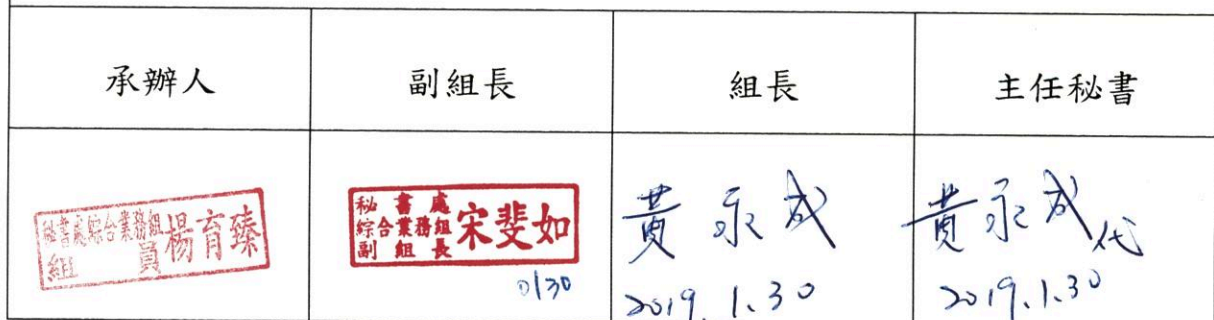 承辦人 副組長 組長 主任秘書
秘書處綜合業務組
組員 楊育臻
秘書處
綜合業務組
副組長 宋斐如
0130
黃永成
2019.1.30
黃永成代
2019.1.30